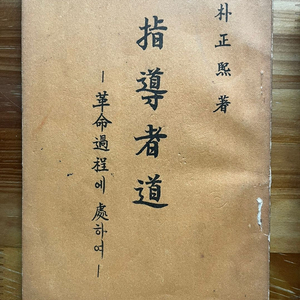 朴正熙 著
指導者道
—革命過程에 處하여—